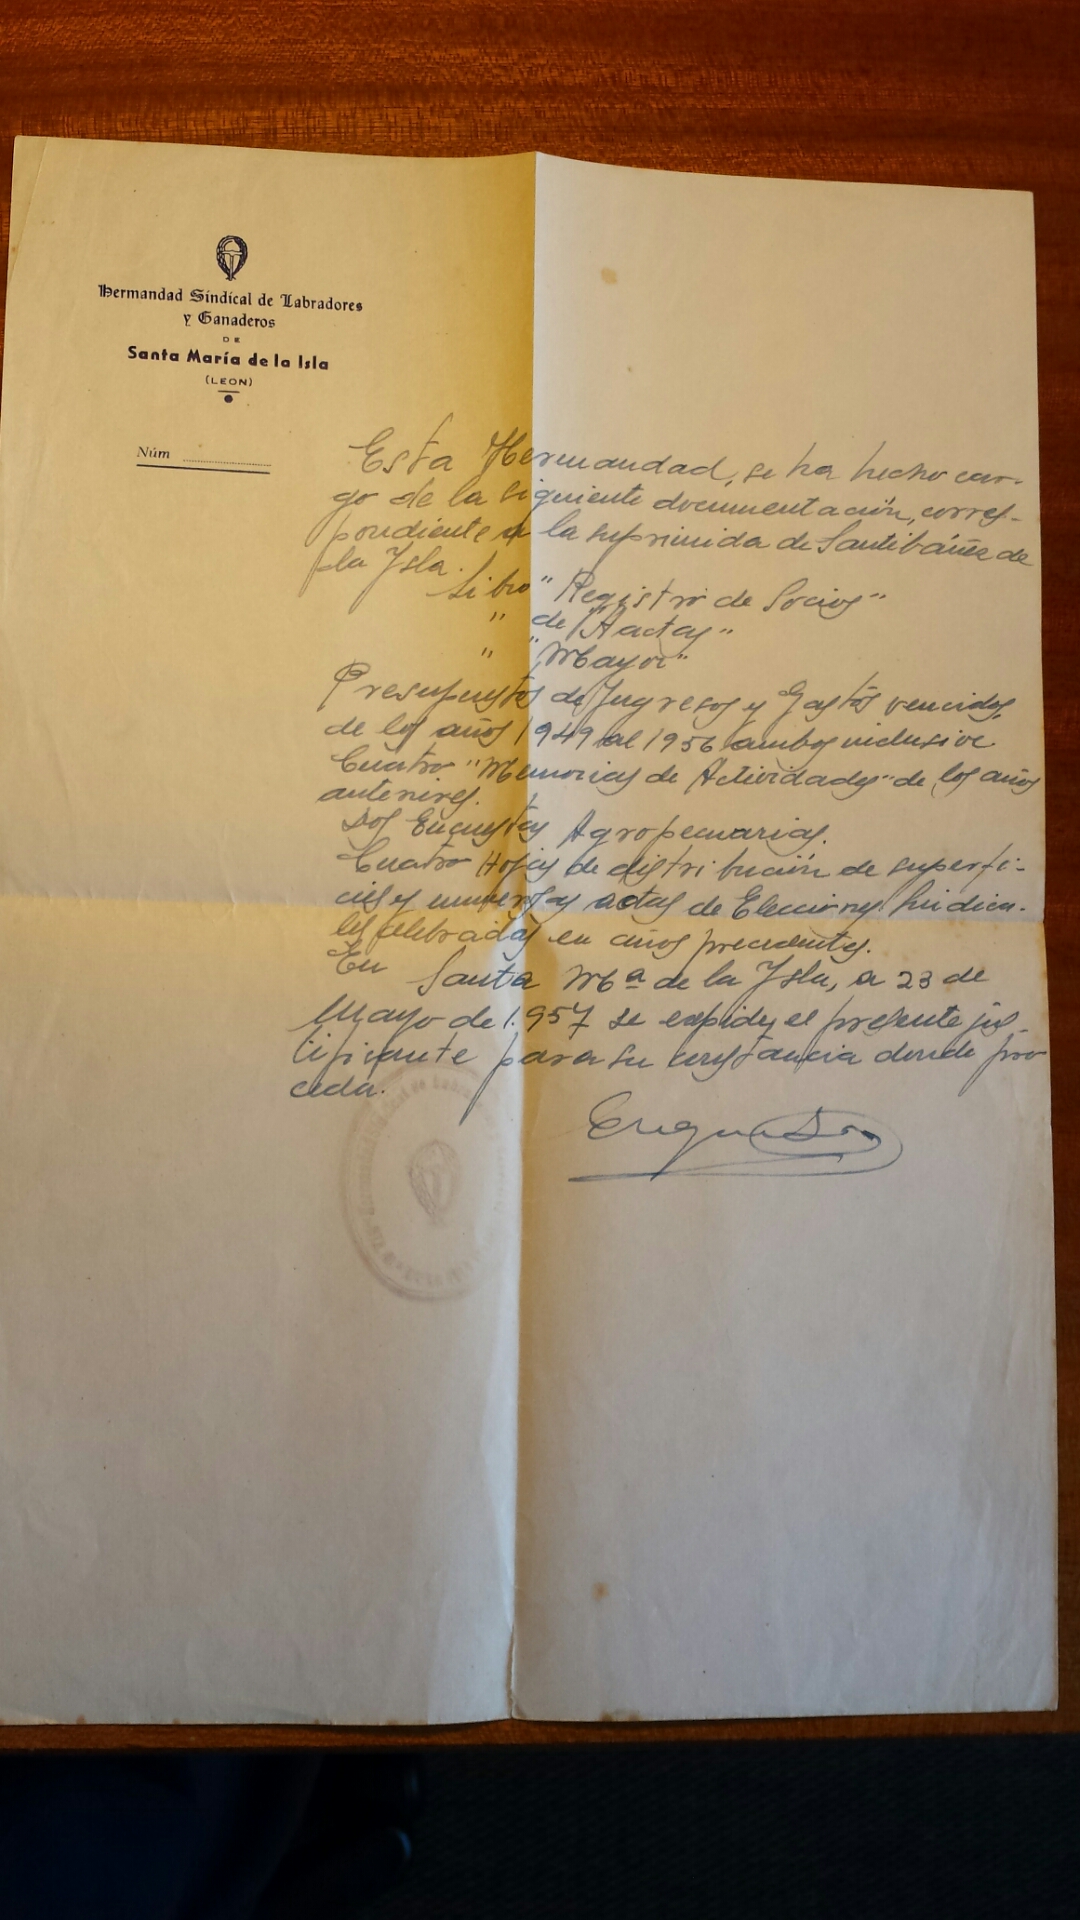 Hermandad Sindical de Labradores
y Ganaderos
DE
Santa María de la Isla
(LEON)
Núm
Esta Hermandad, se ha hecho car-
go de la siguiente documentación, corres-
pondiente a la suprimida de Santibáñez de
la Isla.
Libro "Registro de Socios"
" de "Actas"
" "Mayor"
Presupuestos de Ingresos y Gastos vencidos,
de los años 1949 al 1956 ambos inclusive.
Cuatro "Memorias de Actividades" de los años
anteriores.
Dos Encuestas Agropecuarias.
Cuatro Hojas de distribución de superfi-
cies y actas de Elecciones Sindica-
les celebradas en años precedentes.
En Santa Mª de la Isla, a 23 de
Mayo de 1.957 se expide el presente jus-
tificante para su constancia donde pro
ceda.